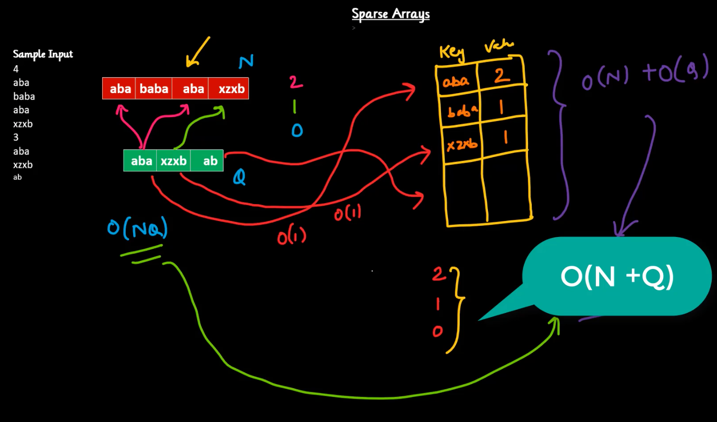 Sparse Arrays
Sample Input
4
aba
baba
aba
xzxb
3
aba
xzxb
ab
N
aba baba aba xzxb
aba xzxb ab
Q
O(NQ)
2
1
0
O(1)
O(1)
Key Value
aba 2
baba 1
xzxb 1
O(N) + O(Q)
2
1
0
O(N +Q)